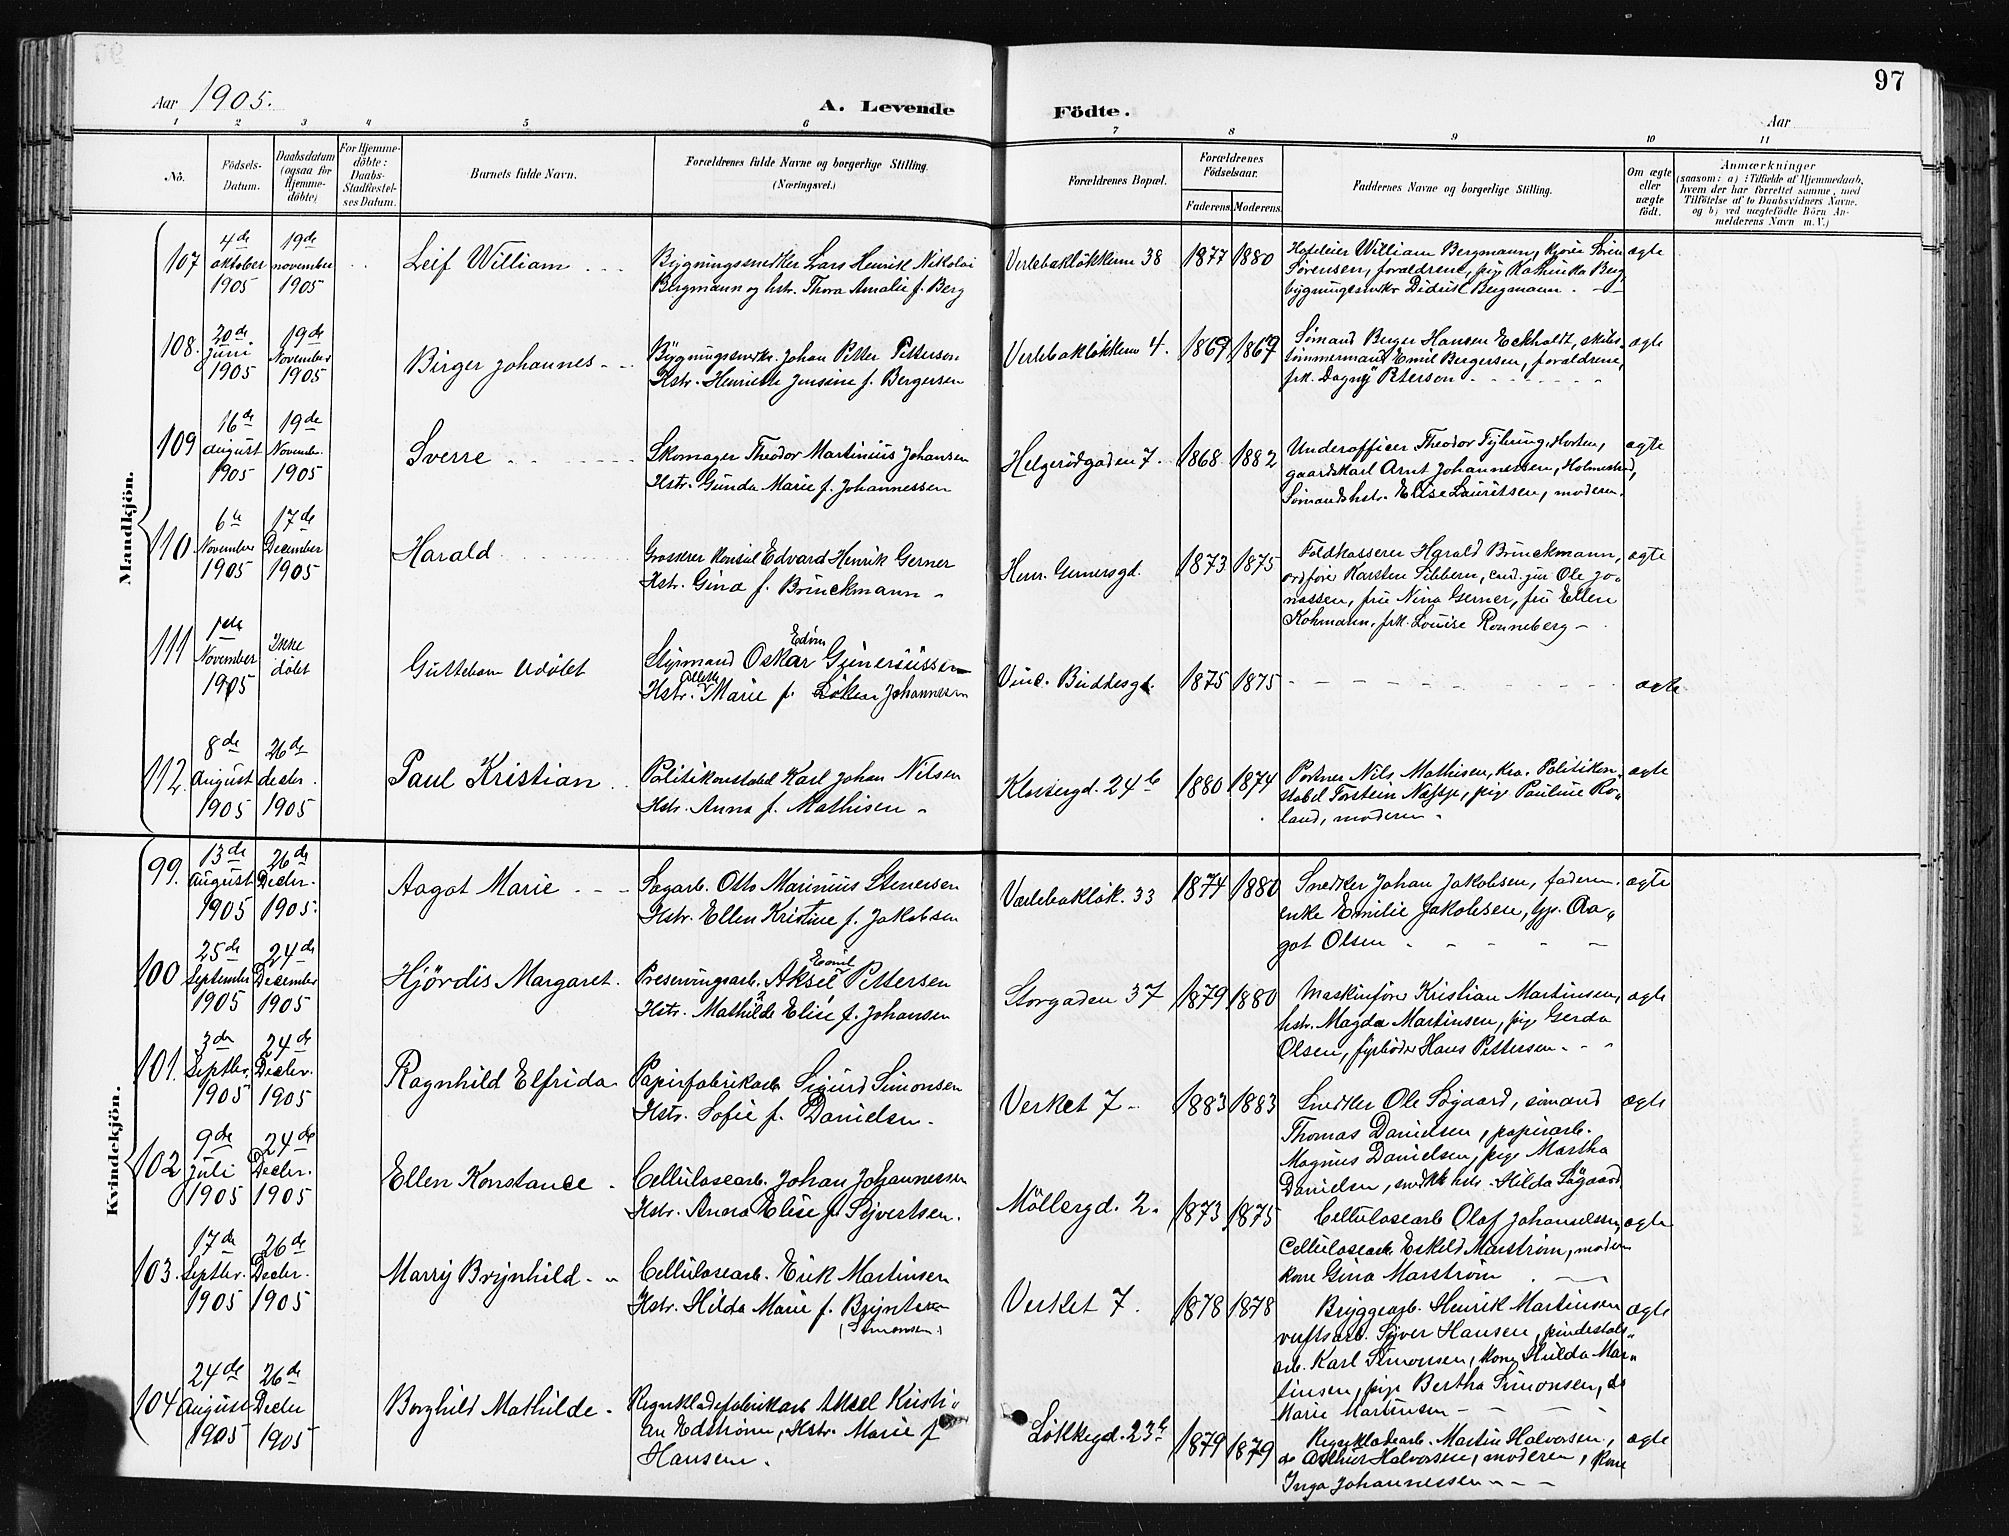 97
Aar 1905.
A. Levende Födte.
Aar
1 2 3 4 5 6 7 8 9 10 11
Nö.
Födsels-Datum.
Daabsdatum (ogsaa for Hjemme-döbte)
For Hjemme-döbte: Daabs-Stadfæstel-ses Datum.
Barnets fulde Navn.
Forældrenes fulde Navne og borgerlige Stilling. (Næringsvei.)
Forældrenes Bopæl.
Forældrenes Födselsaar.
Faderens. Moderens.
Faddernes Navne og borgerlige Stilling.
Om ægte eller uægte födt.
Anmærkninger
(saasom: a) i Tilfælde af Hjemmedaab, hvem der har forrettet samme, med Tilföielse af to Daabsvidners Navne. og b) ved uægtefödte Börn An-melderens Navn m.V.)
Mandkjön.
107 4de oktober 1905 19de november 1905
Leif William
Bygningssnedker Lars Henrik Nikolai
Bergmann og hstr. Thora Amalie f. Berg
Verlebakløkken 38 1877 1880
William Bergmann, Sören
Sörensen, forældrene, pige Kathinka Berg
bygningssnedkr Didrik Bergmann.
ægte
108. 20de Juni 1905 19de November 1905
Birger Johannes
Bygningssnedkr. Johan Petter Petterson
Hstr. Henriette Jensine f. Bergersen
Verlebakløkken 4. 1869 1867
Sømand Berger Hansen Eckholdt, skibs-
tömmermand Emil Bergersen, forældrene,
frk. Dagny Peterson
ægte
109 16de August 1905 19de Novembr. 1905
Sverre
Skomager Theodor Martinius Johansen
Hstr. Gunda Marie f. Johannessen
Helgerödgaden 7. 1868 1882
Underofficer Theodor Horten,
gaardskarl Arnt Johannessen, Holmestrand,
Sømandshstr. Elise Lauritsen, moderen.
ægte
110. 6te November 1905 17de December 1905
Harald
Grosserer Konsul Edvard Henrik Gerner
Hstr. Gina f. Brinckmann
Henr. Gernersgd. 1873 1875
Toldkasserer Harald Brinckmann,
ordförer Karsten Sibbern, cand. jur Ole Jo-
nassen, frue Nina Gerner, fru Ellen
Kohmann, frk. Louise Ronneberg
ægte
111 1ste November 1905 Ikke døbt
Guttebarn Udøbt
Edvin
Styrmand Oskar Guneriussen
Hstr. Marie f. Johannessen
Vinc. Buddesgt. 1875 1875
ægte
112. 8de August 1905 26de decbr. 1905
Paul Kristian
Politikonstabel Karl Johan Nilsen
Hstr. Anna f. Mathisen
Klostergd. 24b 1880 1874
Portner Nils Mathisen, Kra. Politikon-
stabel Torstein Næsje, pige Pauline Ro-
land, moderen.
ægte
Kvindekjön.
99. 13de August 1905 26de Decbr. 1905.
Aagot Marie
Sagarb. Otto Marinius Stenersen
Hstr. Ellen Kristine f. Jakobsen
Værlebakløk. 33 1874 1880
Snedker Johan Jakobsen, faderen.
enke Emilie Jakobsen, pge. Aa-
got Olsen
ægte
100 25de September 1905 24de December 1905
Hjørdis Margaret.
Emil
Preserveringsarb. Aksel Pettersen
Hstr. Mathilde Elise f. Johansen
Storgaden 37 1879 1880
Maskinfører Kristian Martinsen,
hstr. Magda Martinsen, pige Gerda
Olsen, fyrbøder Hans Pettersen
ægte
101. 3die Septbr. 1905 24de Decbr. 1905
Ragnhild Elfrida
Papirfabrikarb. Sigurd Simonsen
Hstr. Sofie f. Danielsen.
Verket 7 1883 1883
Snedker Ole Søgaard, sømand
Thomas Danielsen, papirarb.
Magnus Danielsen, pige Martha
Danielsen, snedkr hstr. Hilda Søgaard
ægte
102 9de Juli 1905 24de Decbr. 1905
Ellen Konstance
Cellulosearb. Johan Johannessen
Hstr. Anna Elise f. Syvertsen.
Möllergd. 2. 1873 1875
Cellulosearb Olaf Johannessen
Cellulosearb. Eskild Marstrøm, moderen
kone Gina Marstrøm
ægte
103. 17de Septbr. 1905 26de Decbr. 1905
Marry Brynhild
Cellulosearb. Erik Martinsen
Hstr. Hilda Marie f. Bryntesen
(Simonsen)
Verket 7. 1878 1878
Bryggearb. Henrik Martinsen
verftsarb. Syver Hansen,
arb. Karl Simonsen, kone Hulda Mar-
tinsen, pige Bertha Simonsen, do
Marie Martinsen
ægte
104 24de August 1905 26de Decbr 1905
Borghild Mathilde
Regnklædefabrikarb Aksel Kristi-
an Edstrøm, Hstr. Marie f
Hansen.
Løkkegd. 23b 1879 1879
Regnklædearb. Martin Halvorsen,
do Arthur Halvorsen, moderen, kone
Inga Johannessen
ægte